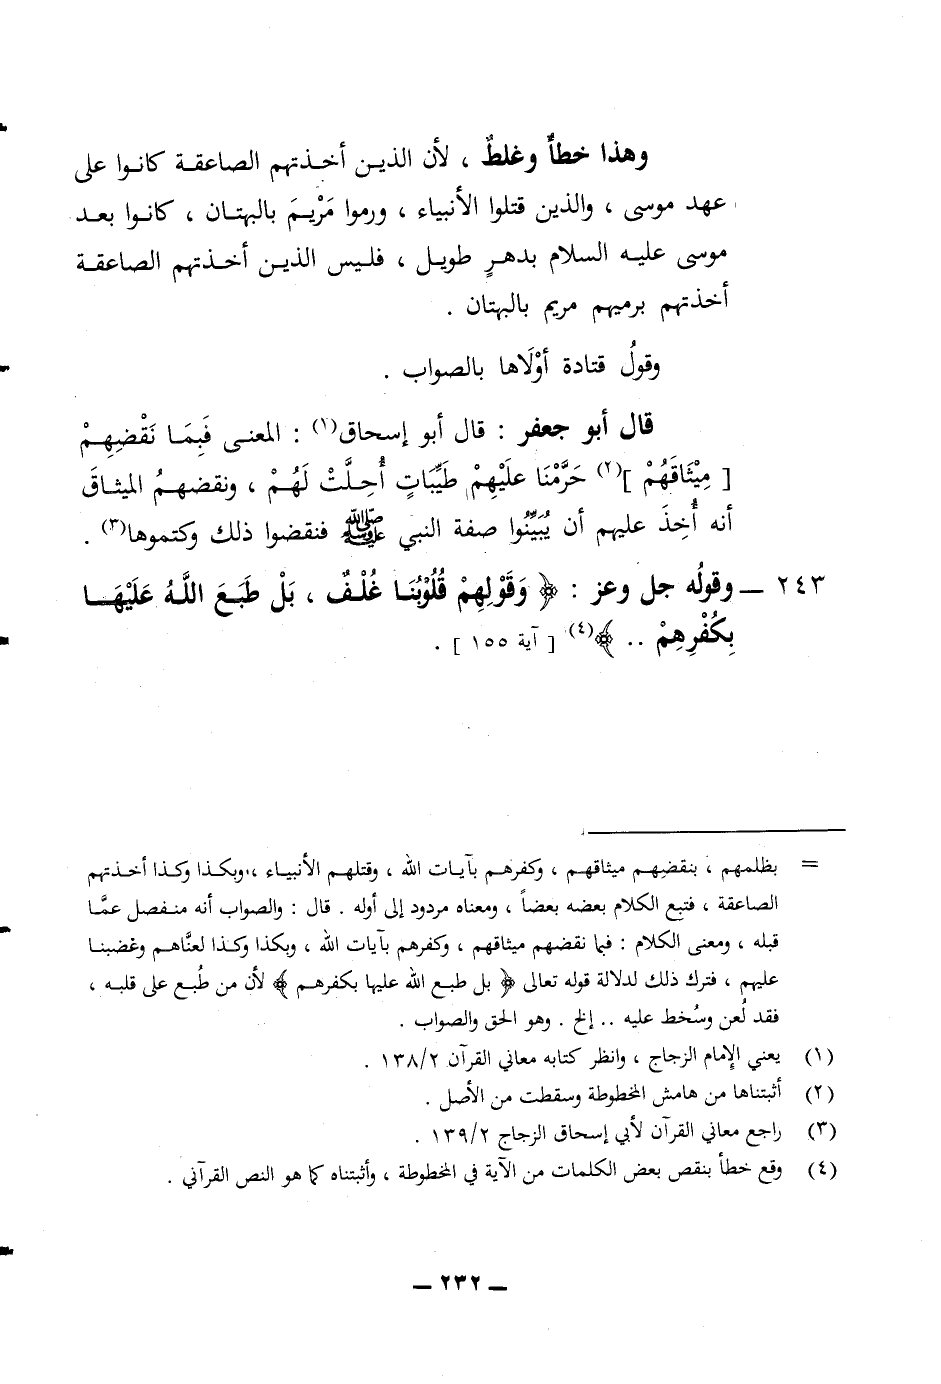 وهذا خطأٌ وغلطٌ ، لأن الذيـن أخـذتهم الصاعقـة كانـوا على
عهد موسى ، والذين قتلوا الأنبياء ، ورموا مَرْيَـمَ بالبهتـان ، كانـوا بعـد
موسى عليـه السلام بدهـرٍ طويـل ، فلـيس الذيـن أخـذتهـم الصاعقـة
أخذتهم برميهم مريم بالبهتان .
وقولُ قتادة أوْلَاها بالصواب .
قال أبو جعفر : قال أبو إسحاق(١) : المعنـى فَبِمَـا نَقْضِهِـمْ
[ مِيْثَاقَهُمْ ](٢) حَرَّمْنَا عليْهِمْ طَيِّبَاتٍ أُحِـلَّتْ لَهُـمْ ، ونقضهـمُ الميثـاقَ
أنه أُخِذَ عليهم أن يُبَيِّنُوا صفة النبي ﷺ فنقضوا ذلك وكتموها(٣) .
٢٤٣ ـ وقولُه جل وعز : ﴿ وَقَوْلِهِمْ قُلُوْبُنَـا غُلْـفٌ ، بَلْ طَبَـعَ اللَّـهُ عَلَيْهَـا
بِكُفْرِهِمْ .. ﴾(٤) [ آية ١٥٥ ] .
= بظلمهم ، بنقضهـم ميثاقهـم ، وكفرهـم بآيـات الله ، وقتلهـم الأنبيـاء ، وبكـذا وكـذا أخـذتهم
الصاعقة ، فتبع الكلام بعضه بعضاً ، ومعناه مردود إلى أوله . قال : والصواب أنه منـفصل عمَّا
قبله ، ومعنى الكلام : فبما نقضهم ميثاقهم ، وكفرهم بآيات الله ، وبكذا وكـذا لعنَّاهـم وغضبنـا
عليهم ، فترك ذلك لدلالة قوله تعالى ﴿ بل طبـع الله عليها بكفرهـم ﴾ لأن من طُبـع على قلبـه ،
فقد لُعن وسُخط عليه .. إلخ . وهو الحق والصواب .
(١) يعني الإمام الزجاج ، وانظر كتابه معاني القرآن ١٣٨/٢ .
(٢) أثبتناها من هامش المخطوطة وسقطت من الأصل .
(٣) راجع معاني القرآن لأبي إسحاق الزجاج ١٣٩/٢ .
(٤) وقع خطأ بنقص بعض الكلمات من الآية في المخطوطة ، وأثبتناه كما هو النص القرآني .
ـ ٢٣٢ ـ